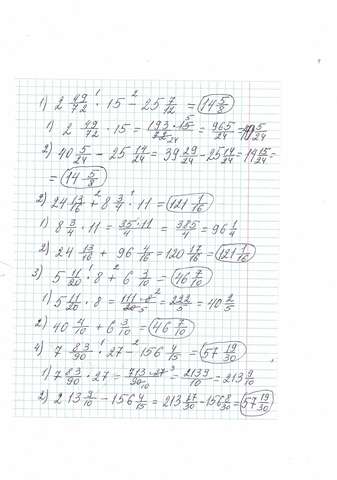 1) 2 49/72 · 15 − 25 7/12 = 14 5/8
1) 2 49/72 · 15 = 193·15/72 24 = 965/24 = 40 5/24
2) 40 5/24 − 25 14/24 = 39 29/24 − 25 14/24 = 14 15/24 =
= 14 5/8
2) 24 13/16 + 8 3/4 · 11 = 121 1/16
1) 8 3/4 · 11 = 35·11/4 = 385/4 = 96 1/4
2) 24 13/16 + 96 4/16 = 120 17/16 = 121 1/16
3) 5 11/20 · 8 + 6 3/10 = 46 7/10
1) 5 11/20 · 8 = 111·8 2/20 5 = 222/5 = 40 2/5
2) 40 4/10 + 6 3/10 = 46 7/10
4) 7 83/90 · 27 − 156 4/15 = 57 19/30
1) 7 83/90 · 27 = 713·27 3/90 10 = 2139/10 = 213 9/10
2) 213 9/10 − 156 4/15 = 213 27/30 − 156 8/30 = 57 19/30